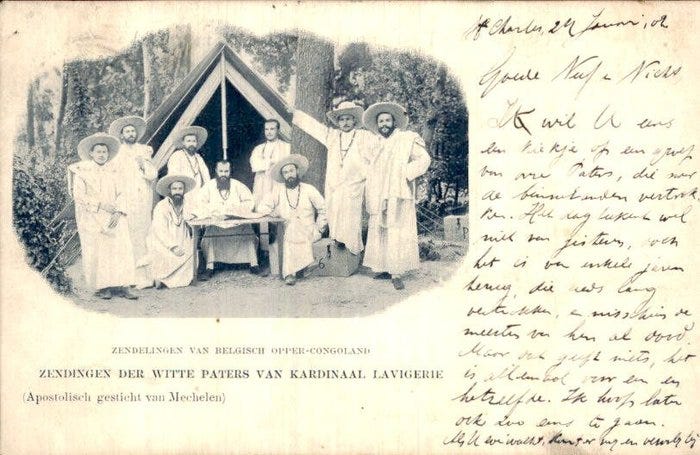 St Charles, 24 Januari, 02
Goede Neef en Nicht
Ik wil U eens
een kiekje op een groep
van onze Paters, die naar
de binnenlanden vertrok-
ken. Het dagteekent wel
niet van gisteren, doch
het is van enkele jaren
terug, die reeds lang
vertrokken, en misschien de
meesten van hen al dood.
Maar dat geeft niets, het
is allemaal voor een en
hetzelfde. Ik hoop later
ook zoo eens te gaan.
Als U
ZENDELINGEN VAN BELGISCH OPPER-CONGOLAND
ZENDINGEN DER WITTE PATERS VAN KARDINAAL LAVIGERIE
(Apostolisch gesticht van Mechelen)